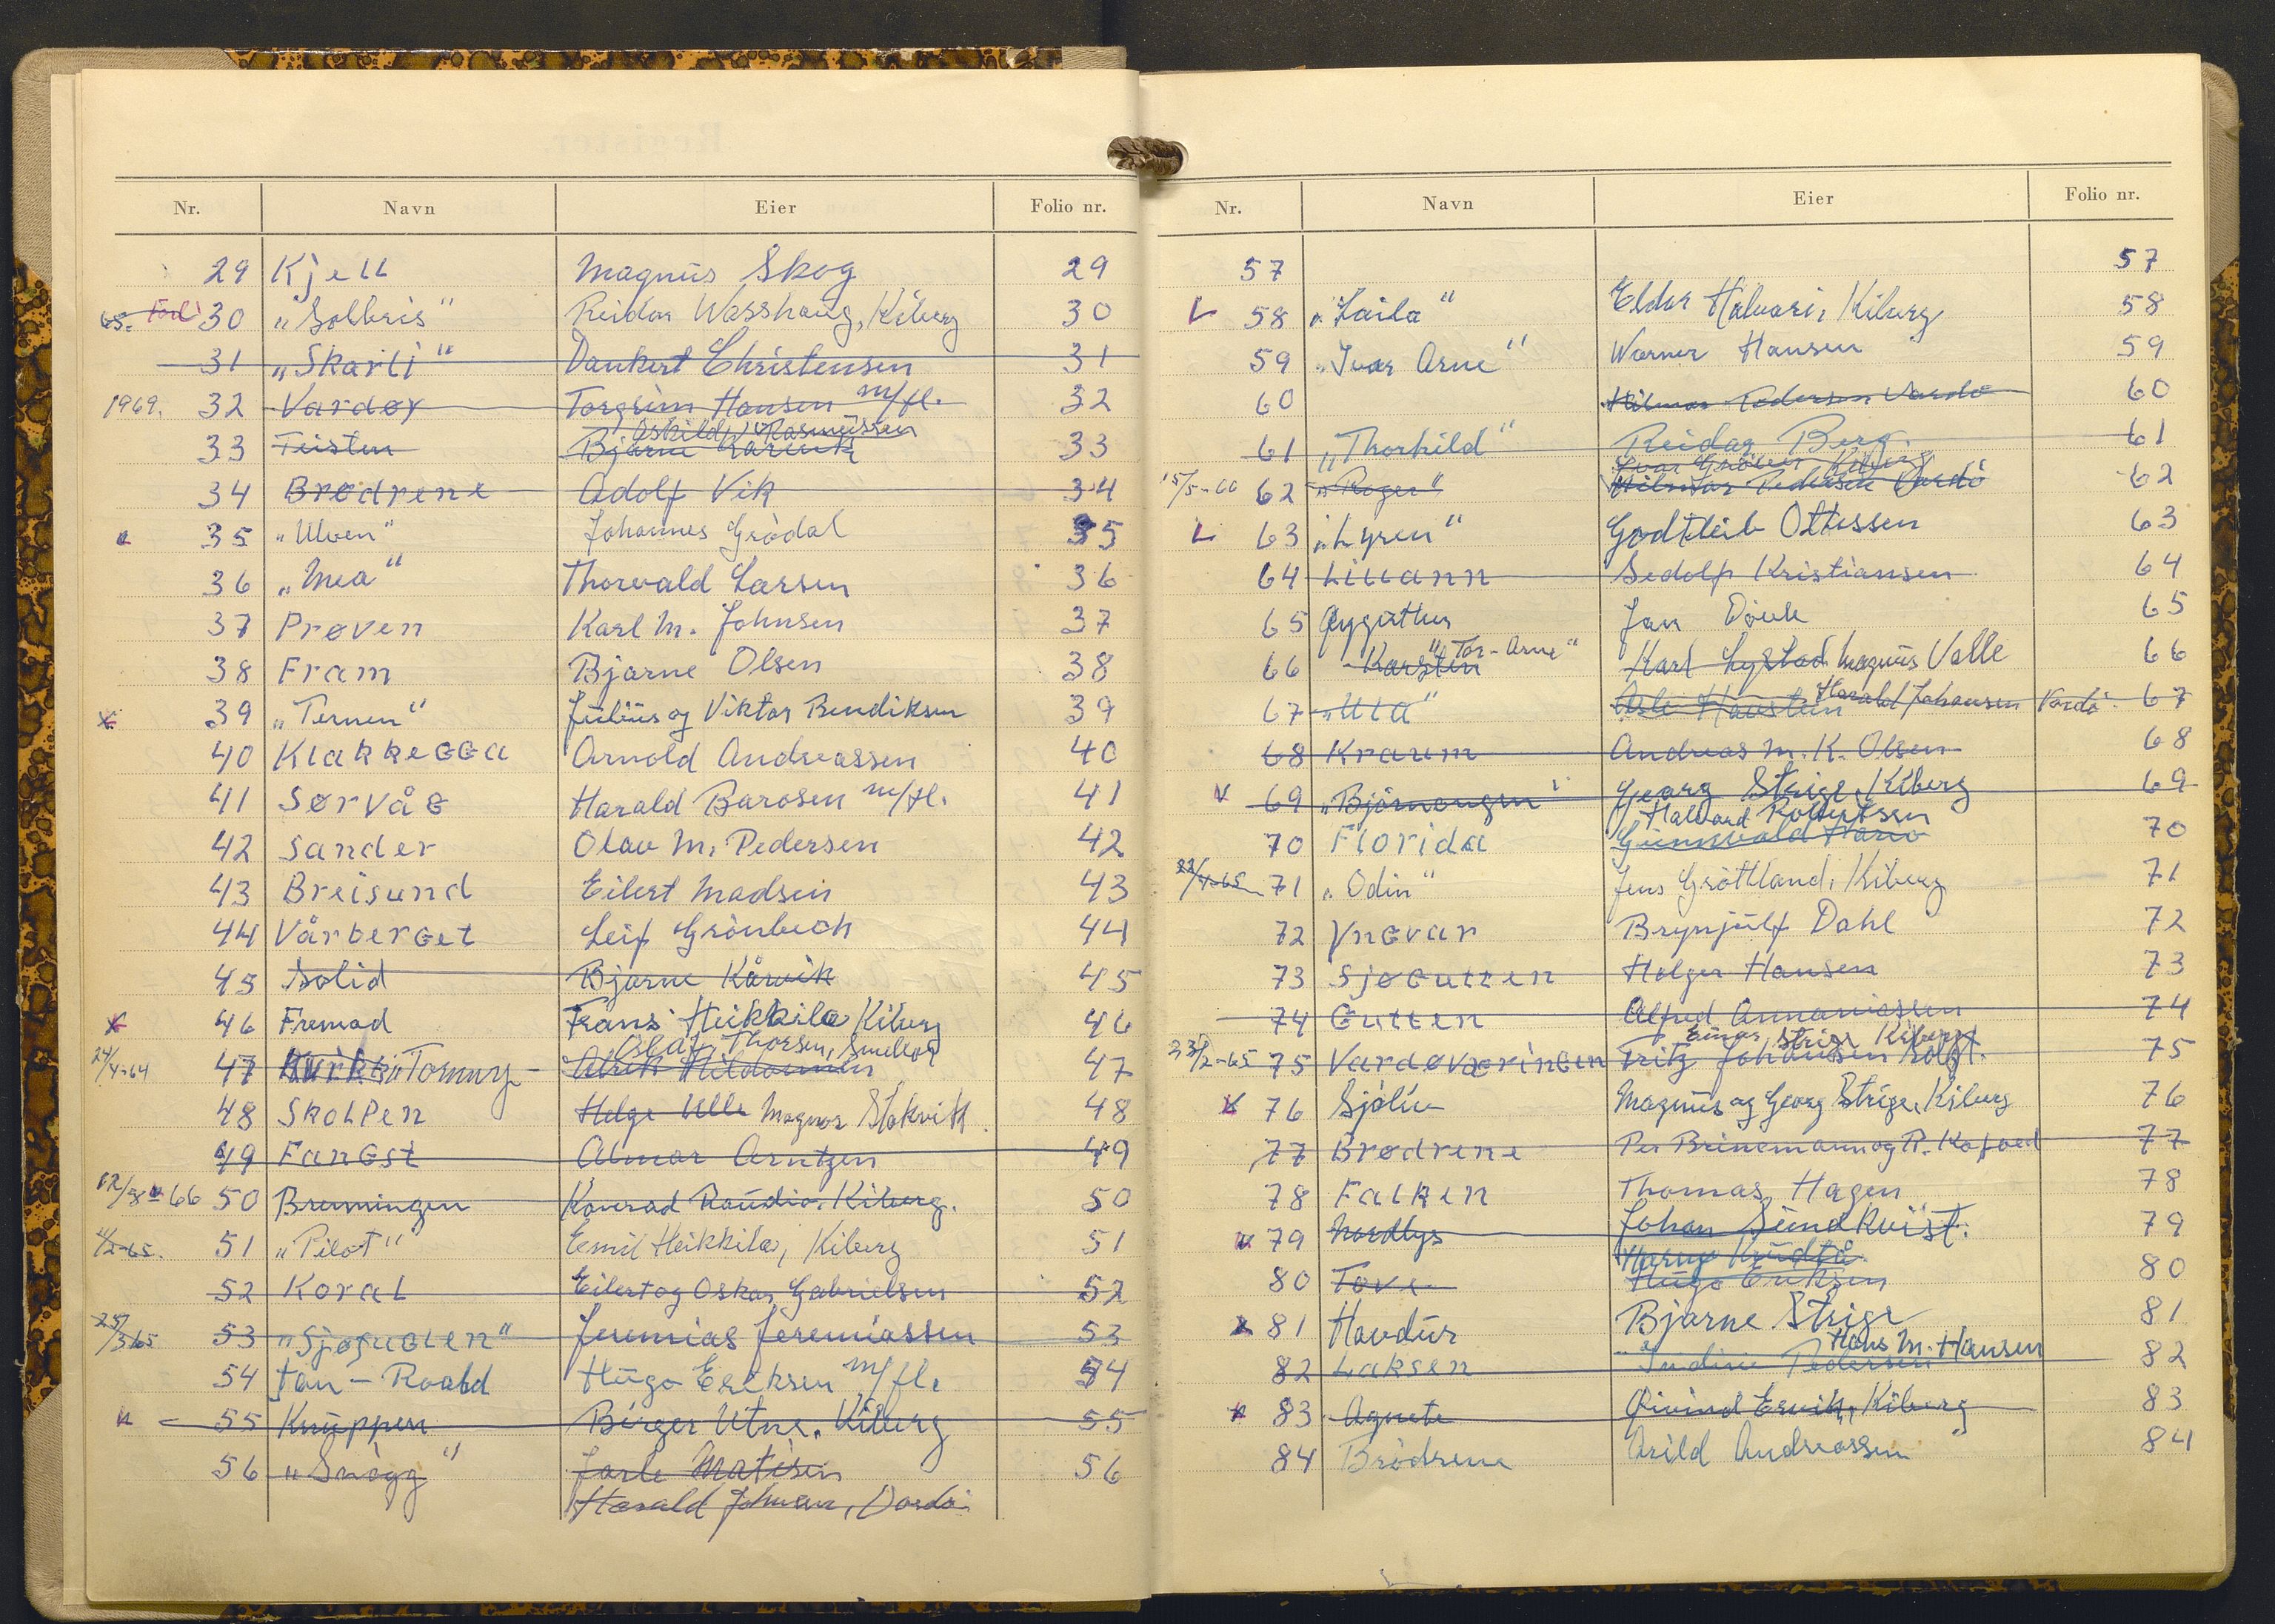 Nr. Navn Eier Folio nr.
29 Kjell Magnus Skog 29
65. 30 "Solbris" Reidar Wasshaug, Kiberg 30
31 "Skarti" Dankert Christensen 31
1969. 32 Vardøy Torgrim Hansen m/fl. 32
Oskild Rasmussen
33 Teisten Bjarne 33
34 Brødrene Adolf Vik 34
35 "Ulven" Johannes Grödal 35
36 "Mea" Thorvald Larsen 36
37 Prøven Karl M. Johnsen 37
38 Fram Bjarne Olsen 38
x 39 "Ternen" Julius og Viktor Bendiksen 39
40 Klakkegga Arnold Andreassen 40
41 Sørvåg Harald Barosen m/fl. 41
42 Sander Olav M. Pedersen 42
43 Breisund Eilert Madsen 43
44 Vårberget Leif Grönbech 44
45 Solid Bjarne Kårvik 45
x 46 Fremad Frans Heikkila Kiberg 46
Olaf Thorsen, Smellror
24/4-64 47 Tommy 47
48 Skolpen Helge Ulle Magnar Stokvik 48
49 Fangst Almar Arntzen 49
12/8-66 50 Brenningen Konrad Raudio. Kiberg. 50
51 "Pilot" Emil Heikkila, Kiberg 51
52 Koral Eilert og Oskar Gabrielsen 52
25/3-65 53 "Sjøfuglen" Jeremias Jeremiassen 53
54 Jan-Roald Hugo Eriksen m/fl. 54
55 Knuppen Birger Utne. Kiberg 55
56 "Snögg" Jarle Matisen 56
Harald Johnsen, Vardö
Nr. Navn Eier Folio nr.
57 57
58 "Laila" Eldor Halvari, Kiberg 58
59 "Ivar Arne" Warner Hansen 59
60 Hilmar Pedersen Vardö 60
61 "Thorhild" Reidar Berg. 61
Ivar Kiberg
15/5-60 62 "Roger" Hilmar Pedersen Vardö 62
63 "Lyren" Godtleib Ottessen 63
64 Liliann Sedolf Kristiansen 64
65 Jan 65
"Tor-Arne"
66 Karsten Karl Lystad Magnus Valle 66
67 "Ula" Harald Johansen Vardö. 67
68 Andreas M. K. Olsen 68
69 "Björnungen" Georg Strige, Kiberg 69
Halvard Robertsen
70 Florida 70
22/4-65 71 "Odin" Jens Gröttland, Kiberg 71
72 Yngvar Brynjulf Dahl 72
73 Sjøgutten Holger Hansen 73
74 Gutten Alfred Annaniassen 74
Einar Strige Kiberg
23/2-65 75 Vardøværingen Fritz Johansen 75
76 Sjöliv Magnus og Georg Strige, Kiberg 76
77 Brødrene Per Brinemann og R. Kofoed 77
78 Falken Thomas Hagen 78
79 Nordlys Johan Sundkvist. 79
80 Tove Hugo Eriksen 80
81 Havdur Bjarne Strige 81
Hans M. Hansen
82 Laksen Pedersen 82
83 Agnete Öivind Ervik, Kiberg 83
84 Brödrene Arild Andreassen 84